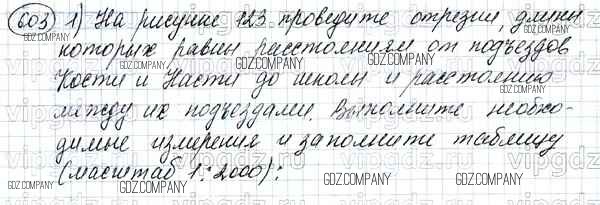 603 1) На рисунке 123 проведите отрезки, длины
которых равны расстояниям от подъездов
Кости и Насти до школы и расстоянию
между их подъездами. Выполните необхо-
димые измерения и заполните таблицу
(масштаб 1:2000):
GDZ.COMPANY
vipgdz